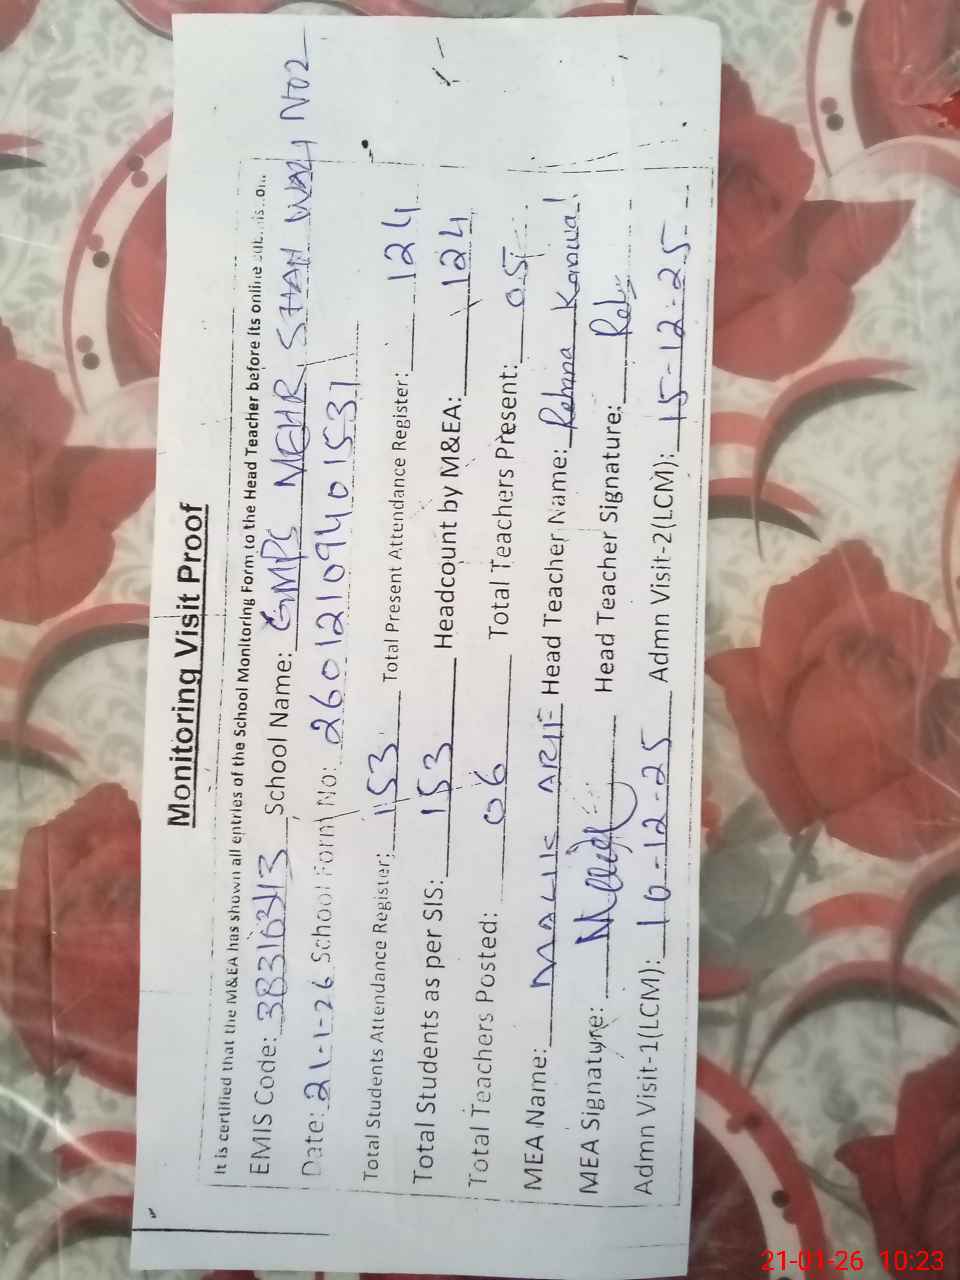 Monitoring Visit Proof
It is certified that the M&EA has shown all entries of the School Monitoring Form to the Head Teacher before its online
EMIS Code: School Name: GMPS MEHR SHAH WALI NO2
Date: 21-1-26 School Form No: 26012109401531
Total Students Attendance Register: 153 Total Present Attendance Register: 124
Total Students as per SIS: 153 Headcount by M&EA: 124
Total Teachers Posted: 06 Total Teachers Present: 05
MEA Name: MALIK ARIF Head Teacher Name: Rehana Kanwal
MEA Signature: Head Teacher Signature:
Admn Visit-1(LCM): 10-12-25 Admn Visit-2(LCM): 15-12-25
21-01-26 10:23